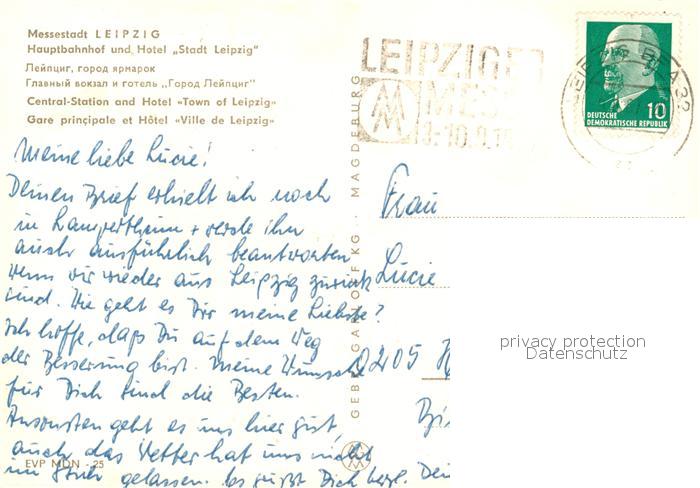 Messestadt LEIPZIG
Hauptbahnhof und Hotel „Stadt Leipzig"
Лейпциг, город ярмарок
Главный вокзал и готель „Город Лейпциг"
Central-Station and Hotel «Town of Leipzig»
Gare principale et Hôtel «Ville de Leipzig»
LEIPZIGER
MM MES
DEUTSCHE
DEMOKRATISCHE REPUBLIK
10
MAGDEBURG
Meine liebe Lucie!
Deinen Brief erhielt ich noch
in Lampertheim + werde ihn
auch ausführlich beantworten
wenn wir wieder aus Leipzig zurück
sind. Wie geht es Dir meine Liebste?
Ich hoffe, dass Du auf dem Weg
der Besserung bist. Meine Wünsche
für Dich sind die Besten.
Ansonsten geht es uns hier gut,
auch das Wetter hat uns nicht
im Stich gelassen. Es grüßt Dich herzl. Dei
EVP MDN -25
Frau
Lucie
privacy protection
Datenschutz